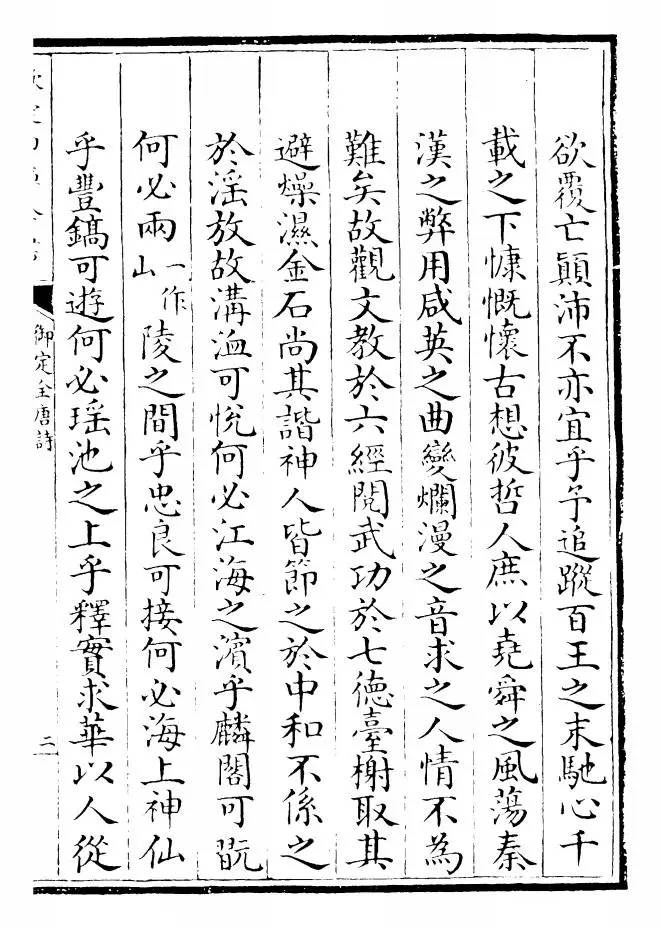 欲覆亡顛沛不亦宜乎予追蹤百王之末馳心千
載之下慷慨懷古想彼哲人庶以堯舜之風蕩秦
漢之弊用咸英之曲變爛漫之音求之人情不為
難矣故觀文教於六經閱武功於七德臺榭取其
避燥濕金石尚其諧神人皆節之於中和不係之
於滛放故溝洫可悅何必江海之濱乎麟閣可翫
何必兩一作山陵之間乎忠良可接何必海上神仙
乎豐鎬可遊何必瑶池之上乎釋實求華以人從
御定全唐詩
二